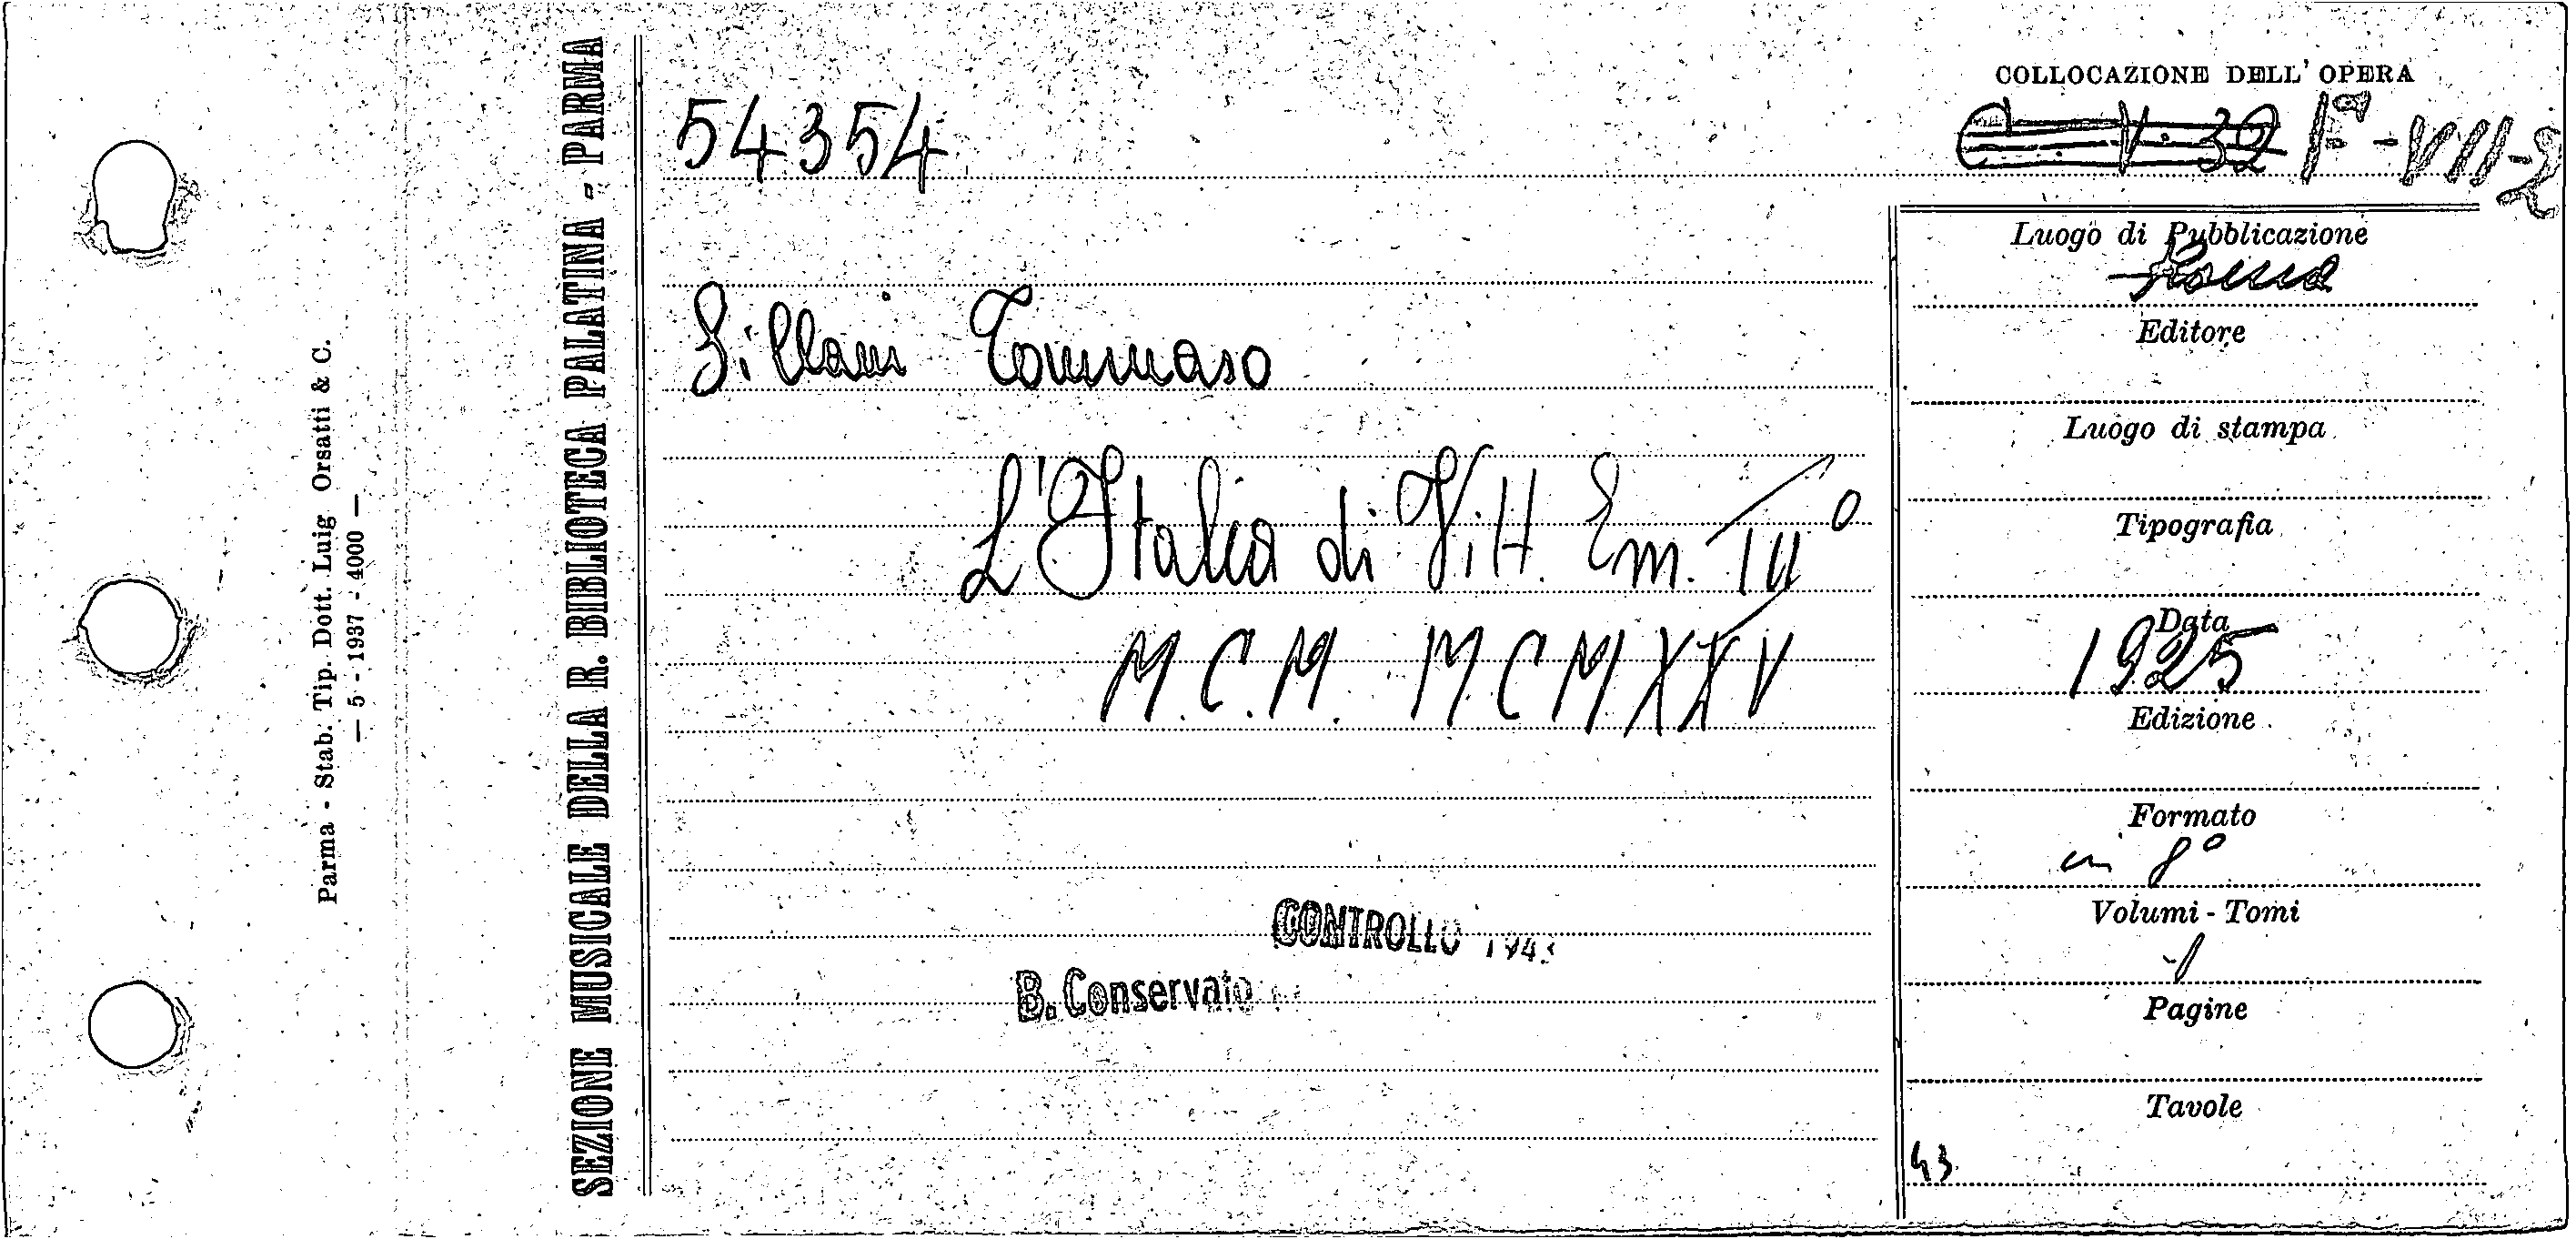 COLLOCAZIONE DELL' OPERA
54354
C V. 32 Fª - VII - 2
Sillani Tommaso
L'Italia di Vitt. Em. III°
M.C.M. MCMXXV
CONTROLLO 194
B. Conservato
Luogo di Pubblicazione
Roma
Editore
Luogo di stampa
Tipografia
Data
1925
Edizione
Formato
in 8°
Volumi - Tomi
1
Pagine
Tavole
43.
SEZIONE MUSICALE DELLA R. BIBLIOTECA PALATINA - PARMA
Parma - Stab. Tip. Dott. Luig Orsatti & C.
— 5 - 1937 - 4000 —